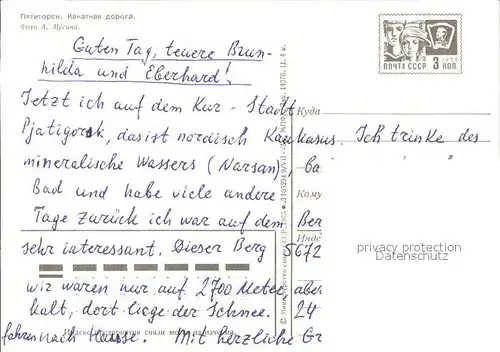 Пятигорск. Канатная дорога.
Фото А. Мусина
ПОЧТА СССР 3 КОП.
1966
Guten Tag, teuere Brun-
hilda und Eberhard!
Jetzt ich auf dem Kur - Stadt
Куда
Pjatigorsk, das ist nordisch Kaukasus. Ich trinke des
mineralische Wassers (Narsan), Ba
Bad und habe viele andere
Кому
Tage zurück ich war auf dem
Ber
sehr interessant. Dieser Berg
Инде
5672
privacy protection
Datenschutz
wir waren nur auf 2700 Meter, aber
kalt, dort liege der Schnee.
24
Индекс предприятия связи места назначения
fahren nach Hause. Mit herzliche Gr